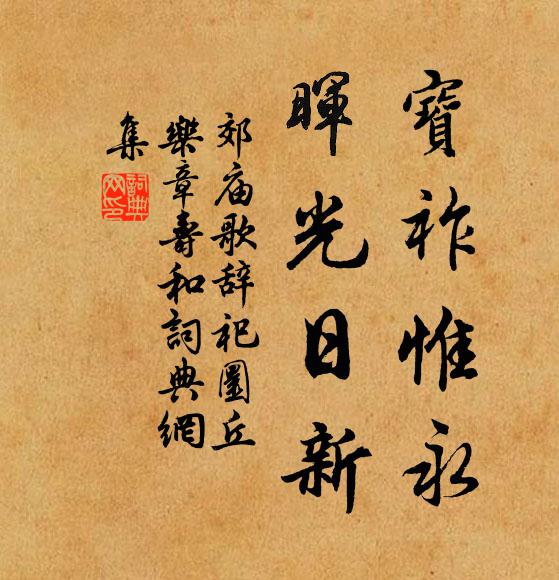 寶祚惟永
暉光日新
郊庙歌辞祀圜丘
樂章壽和詞典網
集
詞典網印